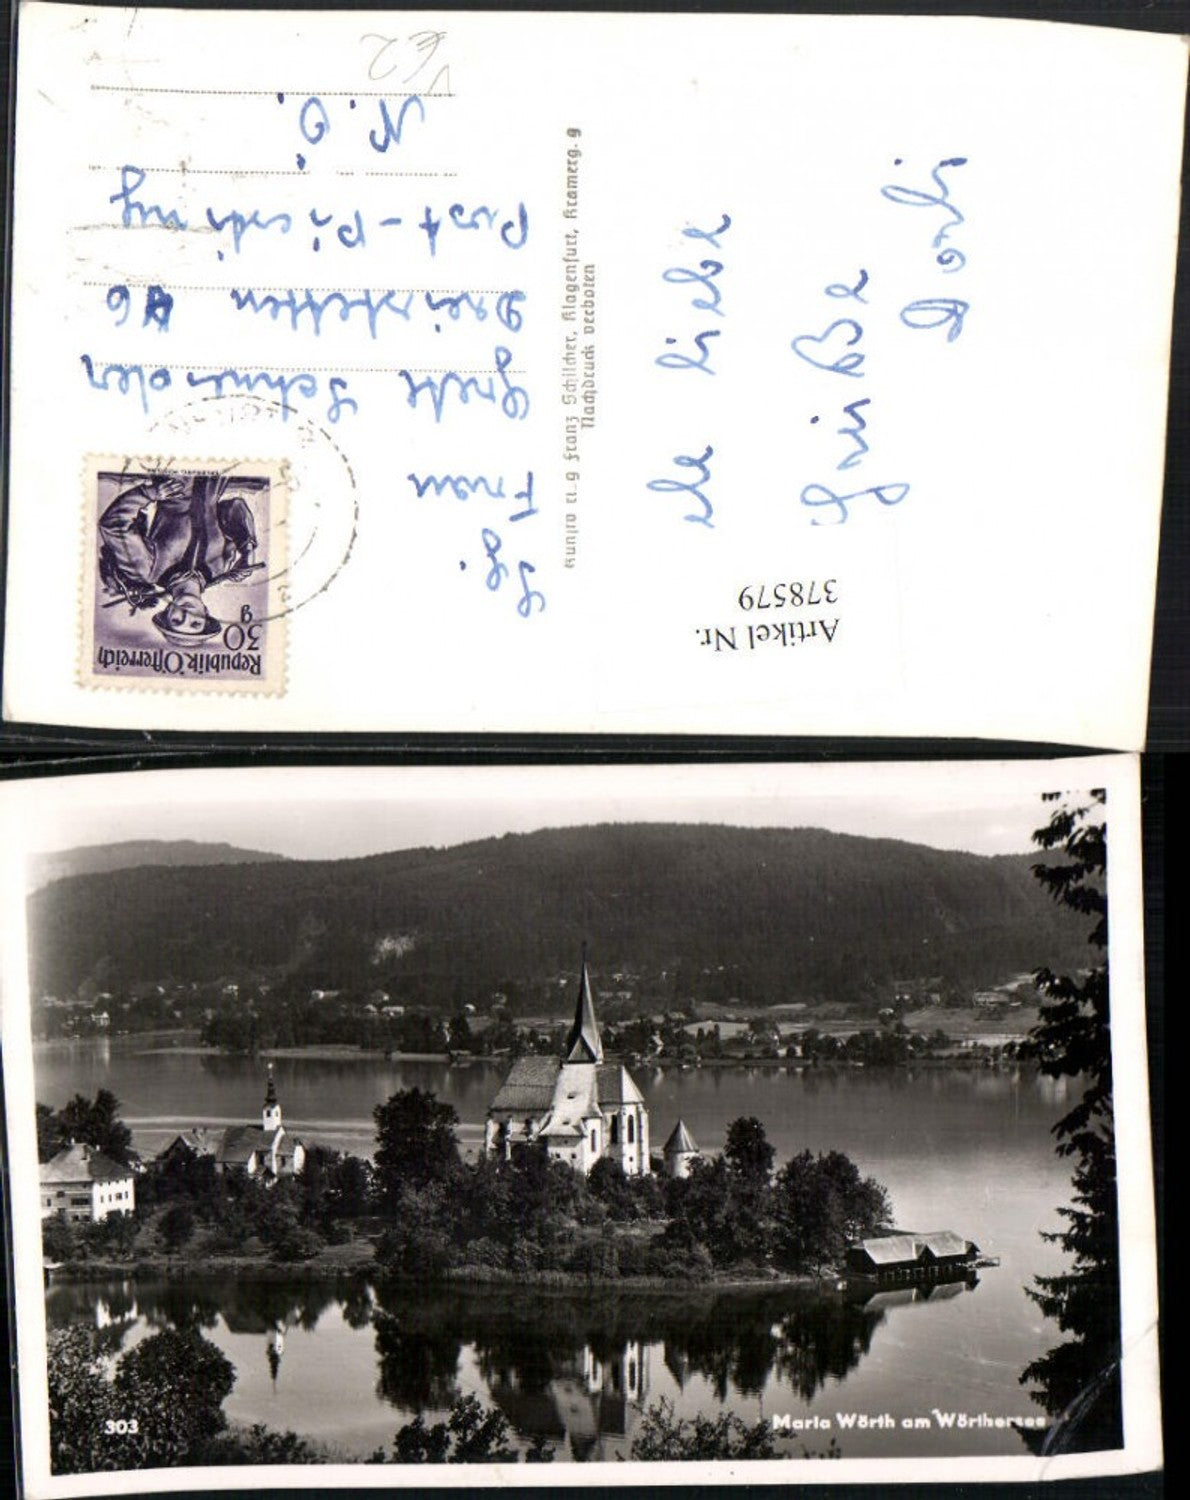 Republik Österreich
30
g
Artikel Nr.
378579
Frau
Grete Schneider
Dreistetten 46
Post - Piesting
N. Ö.
€2
Kunstv u. g Franz Schilcher, Klagenfurt, Kramerg. 9
Nachdruck verboten
liebe
Grüße
Dorli
303
Maria Wörth am Wörthersee